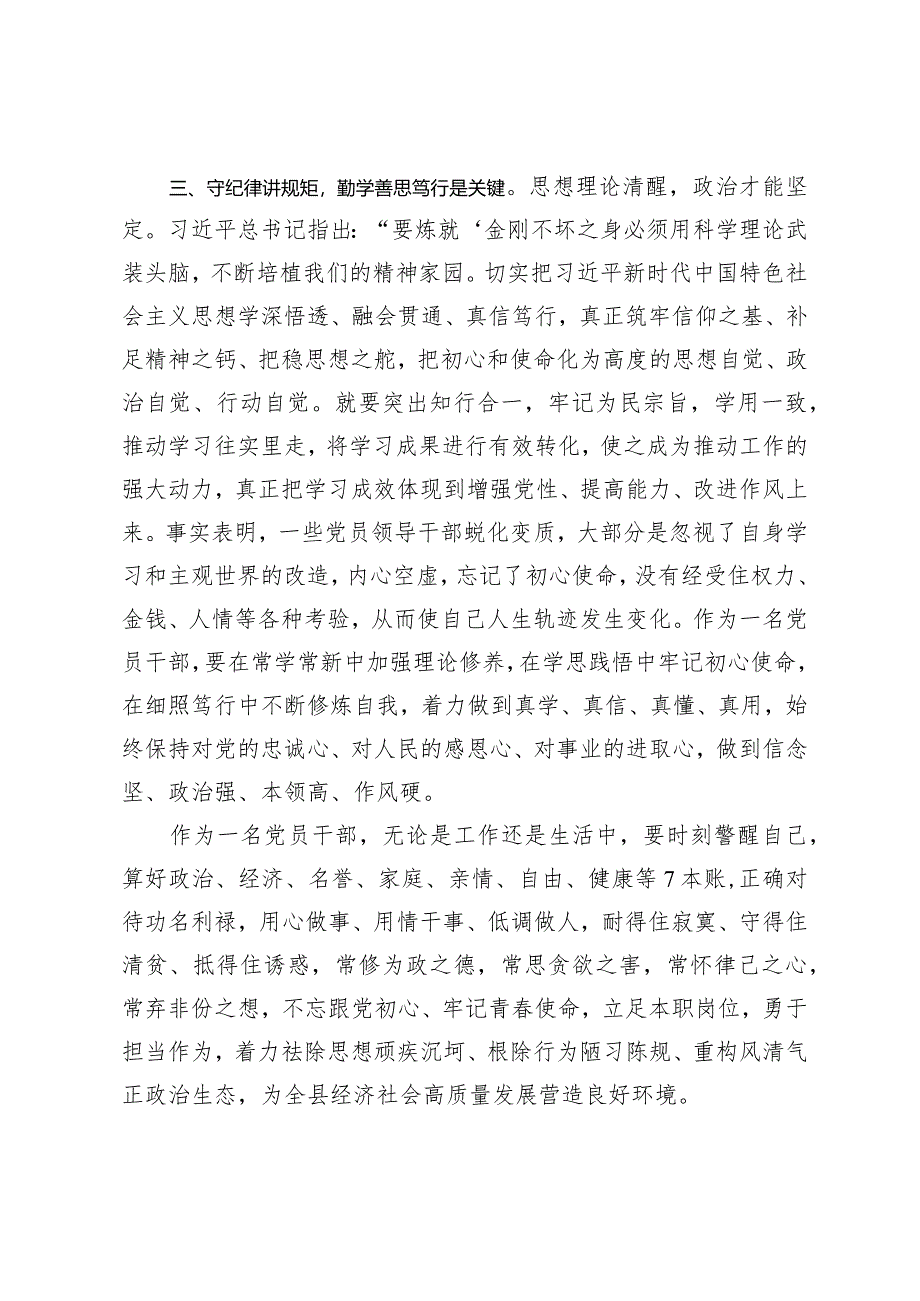 三、守纪律讲规矩，勤学善思笃行是关键。思想理论清醒，政治才能坚
定。习近平总书记指出：“要炼就‘金刚不坏之身必须用科学理论武
装头脑，不断培植我们的精神家园。切实把习近平新时代中国特色社
会主义思想学深悟透、融会贯通、真信笃行，真正筑牢信仰之基、补
足精神之钙、把稳思想之舵，把初心和使命化为高度的思想自觉、政
治自觉、行动自觉。就要突出知行合一，牢记为民宗旨，学用一致，
推动学习往实里走，将学习成果进行有效转化，使之成为推动工作的
强大动力，真正把学习成效体现到增强党性、提高能力、改进作风上
来。事实表明，一些党员领导干部蜕化变质，大部分是忽视了自身学
习和主观世界的改造，内心空虚，忘记了初心使命，没有经受住权力、
金钱、人情等各种考验，从而使自己人生轨迹发生变化。作为一名党
员干部，要在常学常新中加强理论修养，在学思践悟中牢记初心使命，
在细照笃行中不断修炼自我，着力做到真学、真信、真懂、真用，始
终保持对党的忠诚心、对人民的感恩心、对事业的进取心，做到信念
坚、政治强、本领高、作风硬。
作为一名党员干部，无论是工作还是生活中，要时刻警醒自己，
算好政治、经济、名誉、家庭、亲情、自由、健康等7本账,正确对
待功名利禄，用心做事、用情干事、低调做人，耐得住寂寞、守得住
清贫、抵得住诱惑，常修为政之德，常思贪欲之害，常怀律己之心，
常弃非份之想，不忘跟党初心、牢记青春使命，立足本职岗位，勇于
担当作为，着力祛除思想顽疾沉坷、根除行为陋习陈规、重构风清气
正政治生态，为全县经济社会高质量发展营造良好环境。